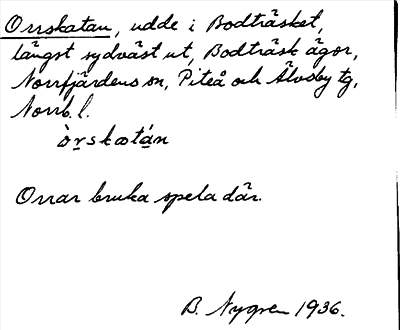 Orrskatan, udde i Bodträsket,
längst sydväst ut, Bodträsk ägor,
Norrfjärdens sn, Piteå och Älvsby tg,
Norrb. l.
òrskatán
Orrar bruka spela där.
B. Nygren 1936.